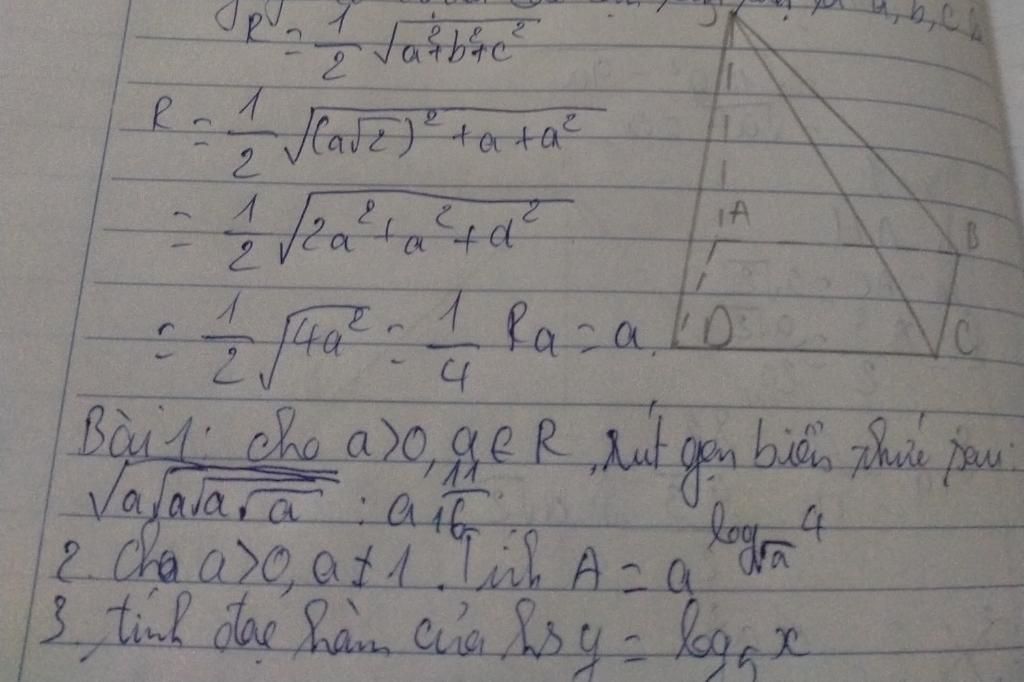 a, b, c
R = 1/2 √(a²+b²+c²)
R = 1/2 √((a√2)² + a + a²)
= 1/2 √(2a² + a² + a²)
A
B
= 1/2 √(4a²) = 1/4 Ra = a.
D
C
Bài 1: cho a>0, a∈R, rút gọn biển thức sau:
√(a√(a√(a√a))) : a^(11/16)
2. Cho a>0, a≠1. Tính A = a^(log_√a 4)
3, tính đạo hàm của hs y = log₅ x